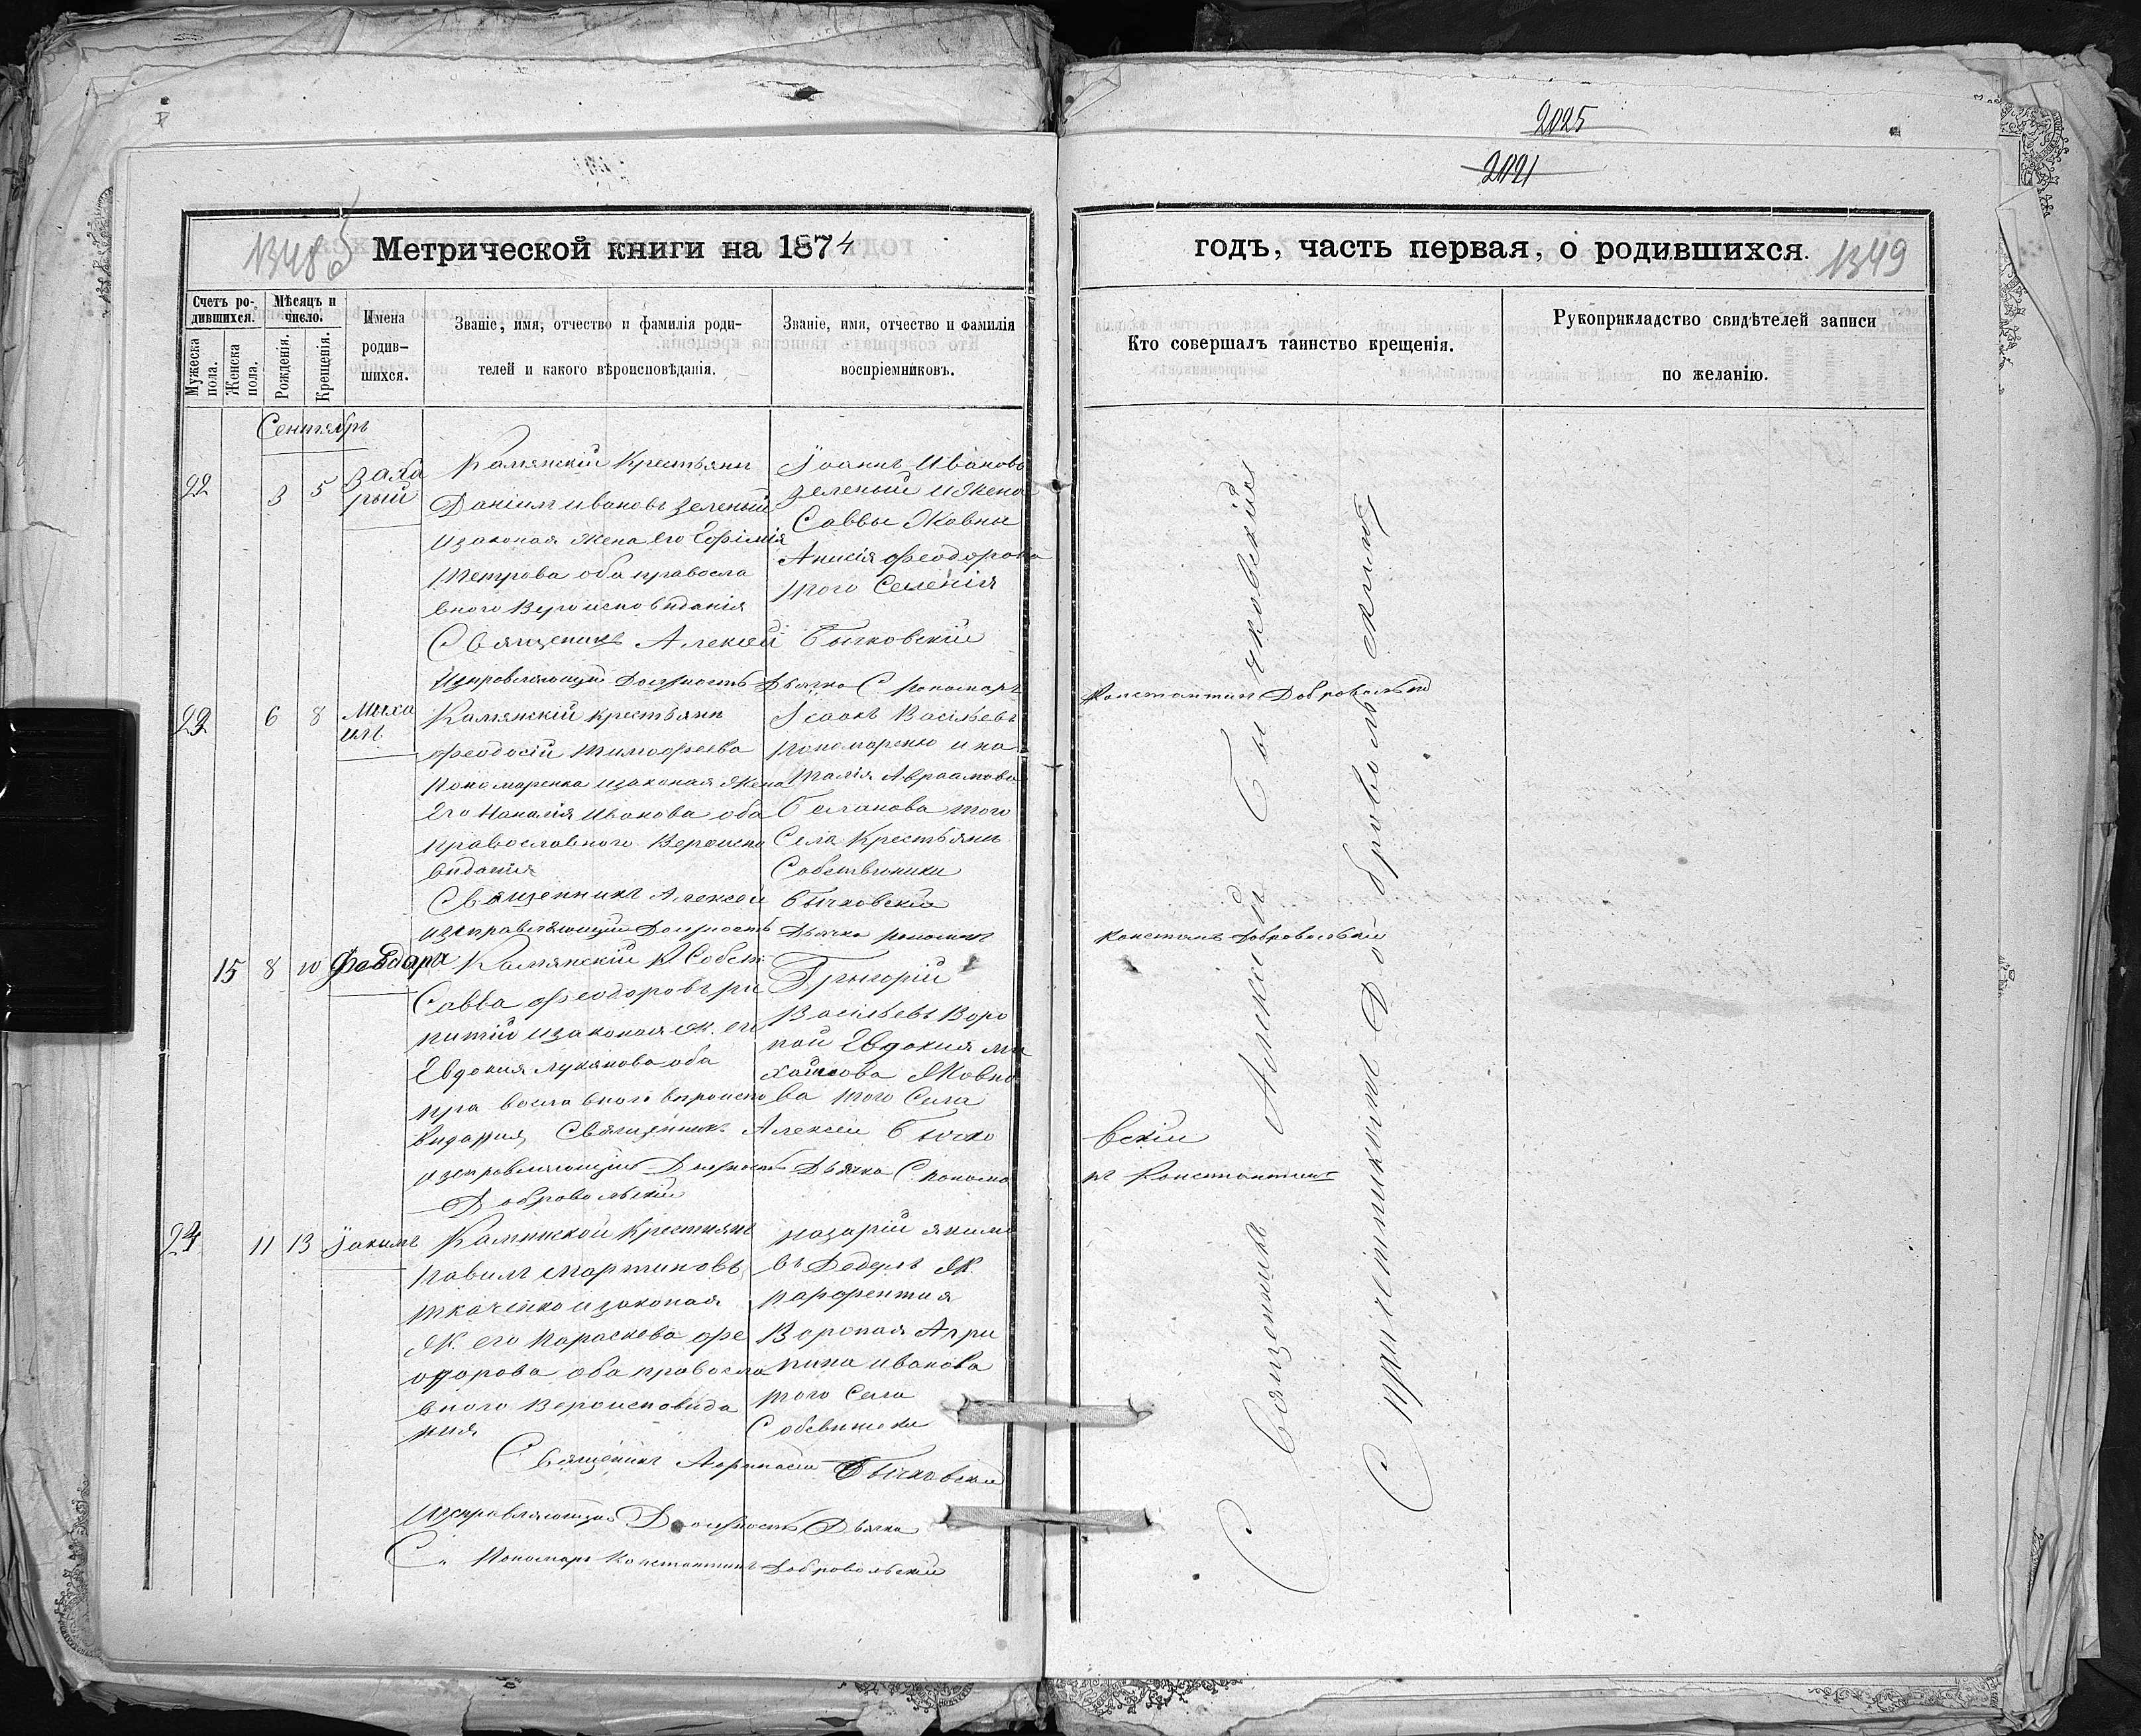 2025
2021
1348 об
Метрической книги на 1874
годъ, часть первая, о родившихся.
1349
Счетъ ро-
дившихся.
Мужеска
пола.
Женска
пола.
Мѣсяцъ и
число.
Рожденія.
Крещенія.
Имена
родив-
шихся.
Званіе, имя, отчество и фамилія роди-
телей и какого вѣроисповѣданія.
Званіе, имя, отчество и фамилія
воспріемниковъ.
Кто совершалъ таинство крещенія.
Рукоприкладство свидѣтелей записи
по желанію.
Сентябрь
22
3
5
Заха
рый
Камянскій Крестьянъ
Даніилъ Ивановъ Зеленый
изаконая Жена его Ефімія
Петрова оба правосла
вного Вероисповиданія
Іоаннъ Ивановъ
Зеленый и Жена
Саввы Яковны
Анисія Феодорова
того Селенія
Священикъ Алексей Бычковскій
Изправляющи Должность Дьячка С Пономарь
Константинъ Добровольскій
23
6
8
Миха
илъ
Камянскій крестьянъ
Феодосій Тимофеева
Пономаренка изаконая Жена
Его Наталія Иванова оба
православного Вероиспо
виданія
Ісаакъ Васильевъ
Пономаренко и На
талія Авраамова
Баланова того
Села Крестьянъ
Собственики
Священникъ Алексей Бычковскій
изправляющій Должность Дьячка Пономарь
Констант. Добровольскій
15
8
10
Феодора
Камянскій К Собст.
Савва Феодоровъ
питій изаконая ж. его
Евдокия Лукянова оба
православного вероиспо
видания
Григорій
Васильевъ Воро
пай Евдокия Ми
хайлова Яковно
ва того Села
Священникъ Алексей Бычко
вскій
изправляющій Должность Дьячка С Понома
рь Константинъ
Добровольскій
24
11
13
Іакимъ
Каминской Крестянъ
Павилъ Мартиновъ
Ткаченко изаконая
Ж. его Параскева Фе
одорова оба правосла
вного Вероисповида
ния
Назарій Якимо
въ Дедулъ Ж.
Парфентия
Воропая Агри
пина Иванова
того Села
Священикъ Бычковскій
Исправляющій Должность Дьячка
С. Пономарь Константинъ Добровольский
Священникъ Алексий Бычковскій
С причетникомъ Добровольскимъ